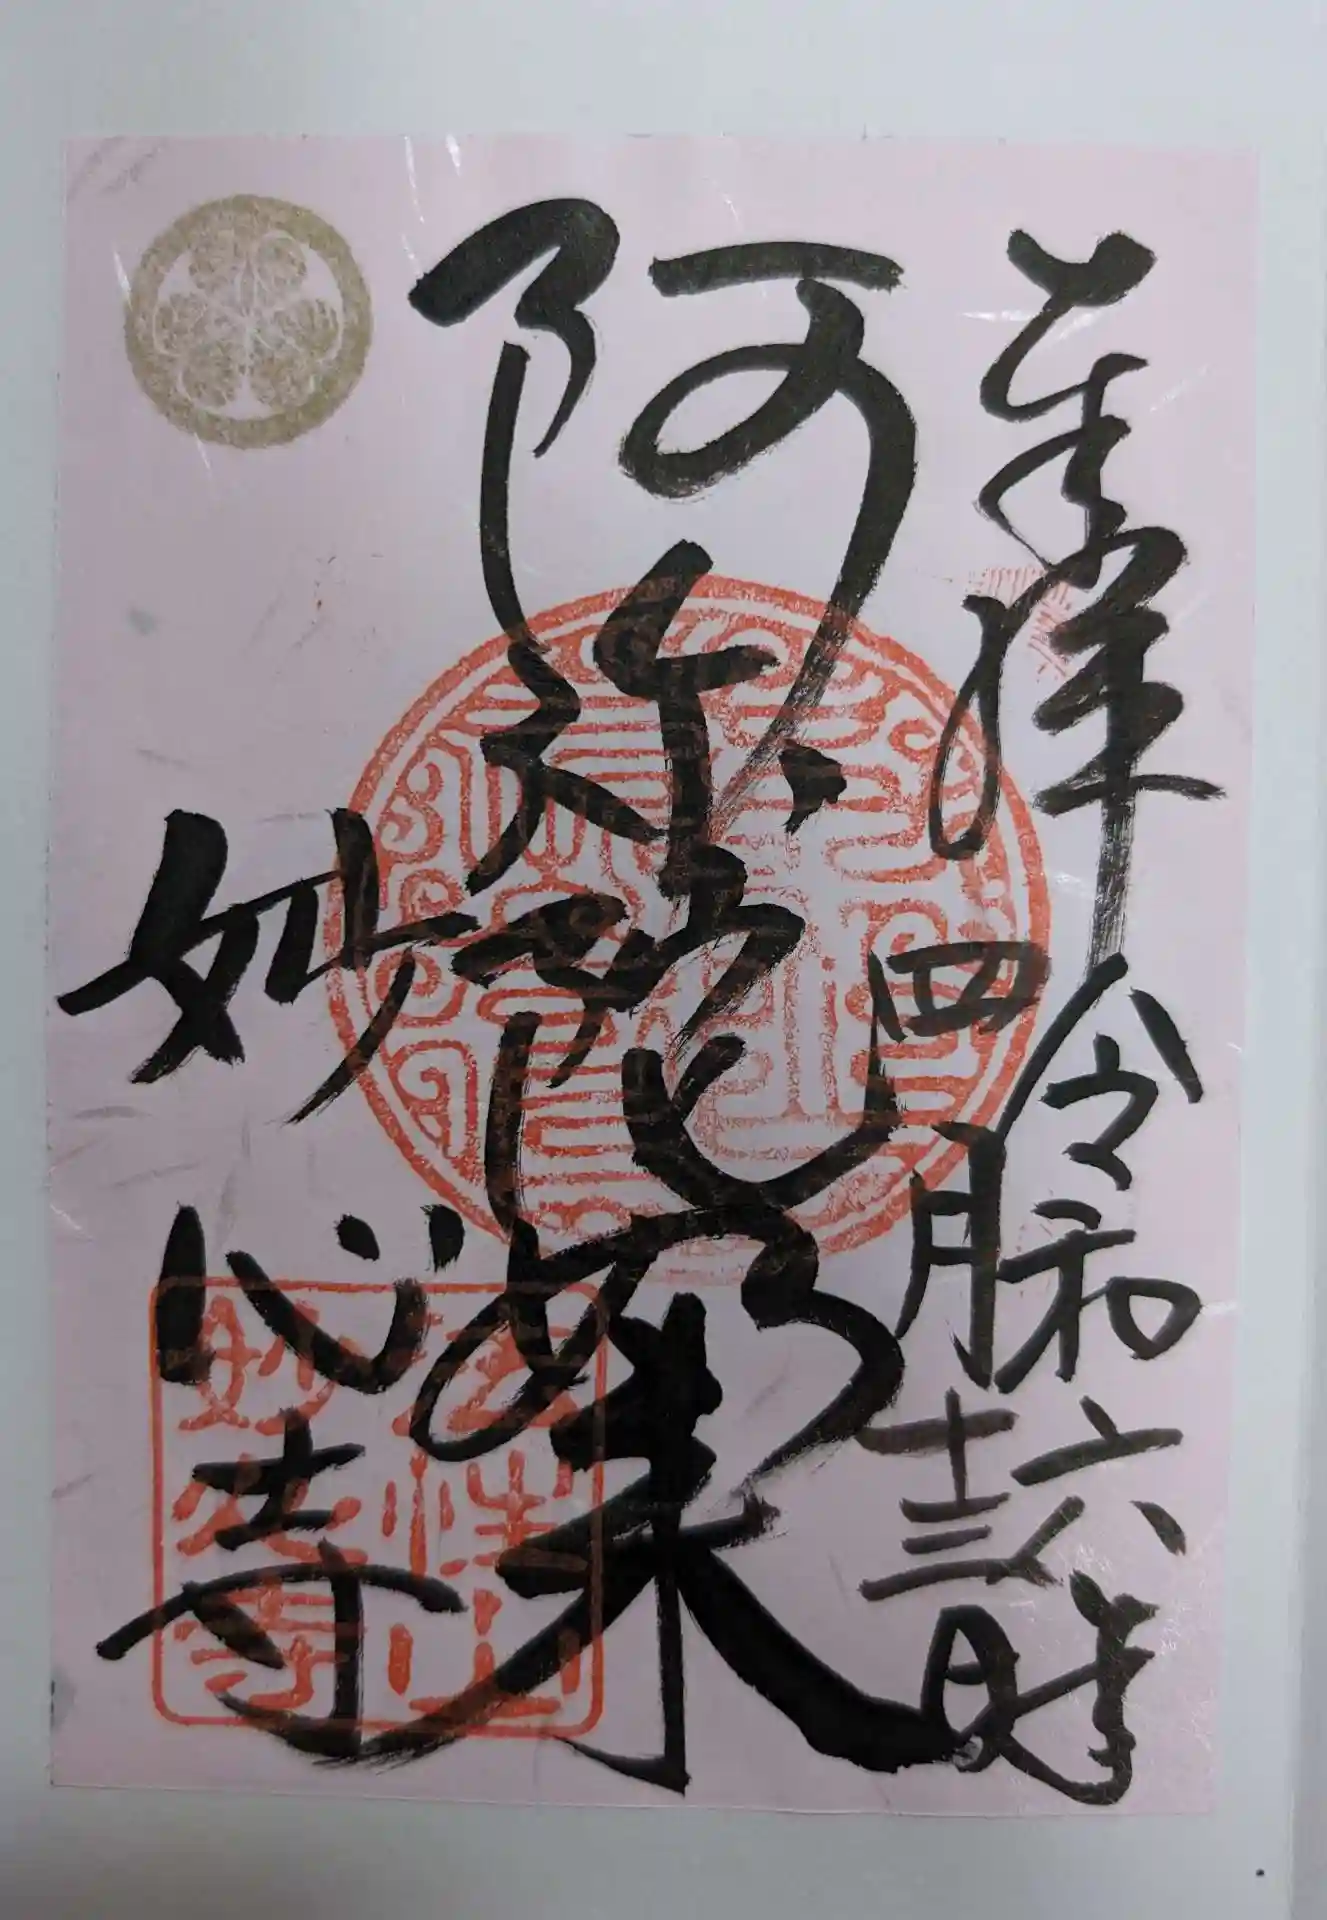 奉拝
令和六年
四月十三日
阿弥陀如来
妙心寺
法性山
妙心寺